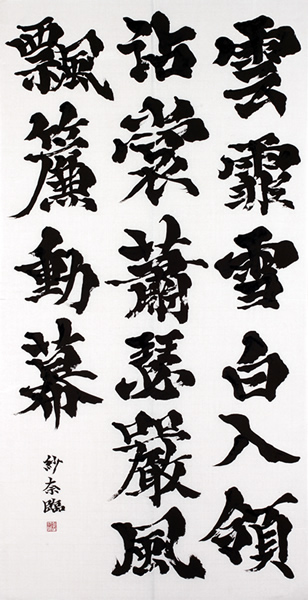 雲霏雪白入領
沾裳蕭瑟嚴風
飄簾動幕
紗奈臨